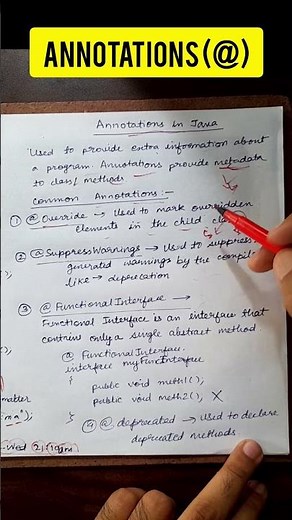 ANNOTATIONS (@)
Annotations in Java
Used to provide extra information about
a program. Annotations provide metadata
to class/methods
Common Annotations:-
① @Override → Used to mark overridden
elements in the child class
② @SuppressWarnings → Used to suppress
generated warnings by the compiler
like → deprecation
③ @ FunctionalInterface →
Functional Interface is an interface that
contains only a single abstract method
@ FunctionalInterface.
interface myFuncInterface
{
public void meth1();
public void meth2(); X
}
④ @ deprecated → Used to declare
deprecated methods